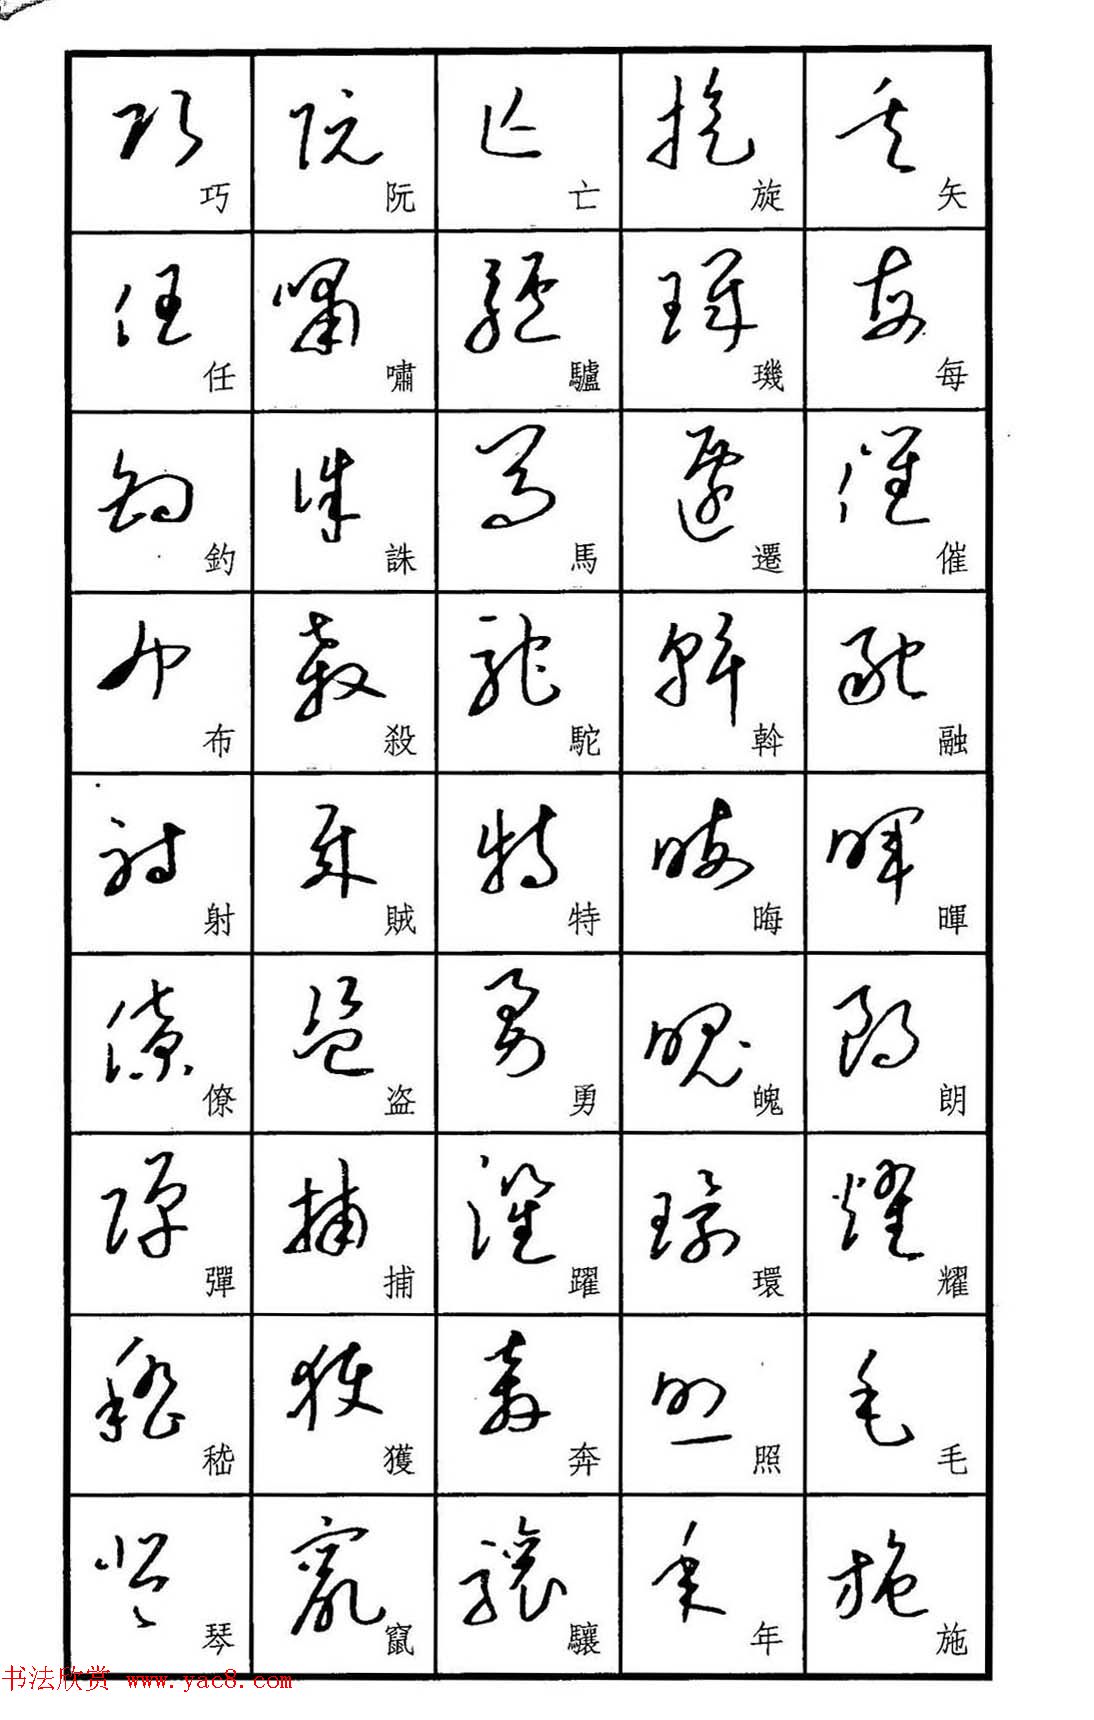 矢每催融暉朗耀毛施
旋璣遷斡晦魄環照年
亡驢馬駝特勇躍奔驤
阮嘯誅殺賊盗捕獲竄
巧任釣布射僚彈嵇琴
书法欣赏 www.yac8.com